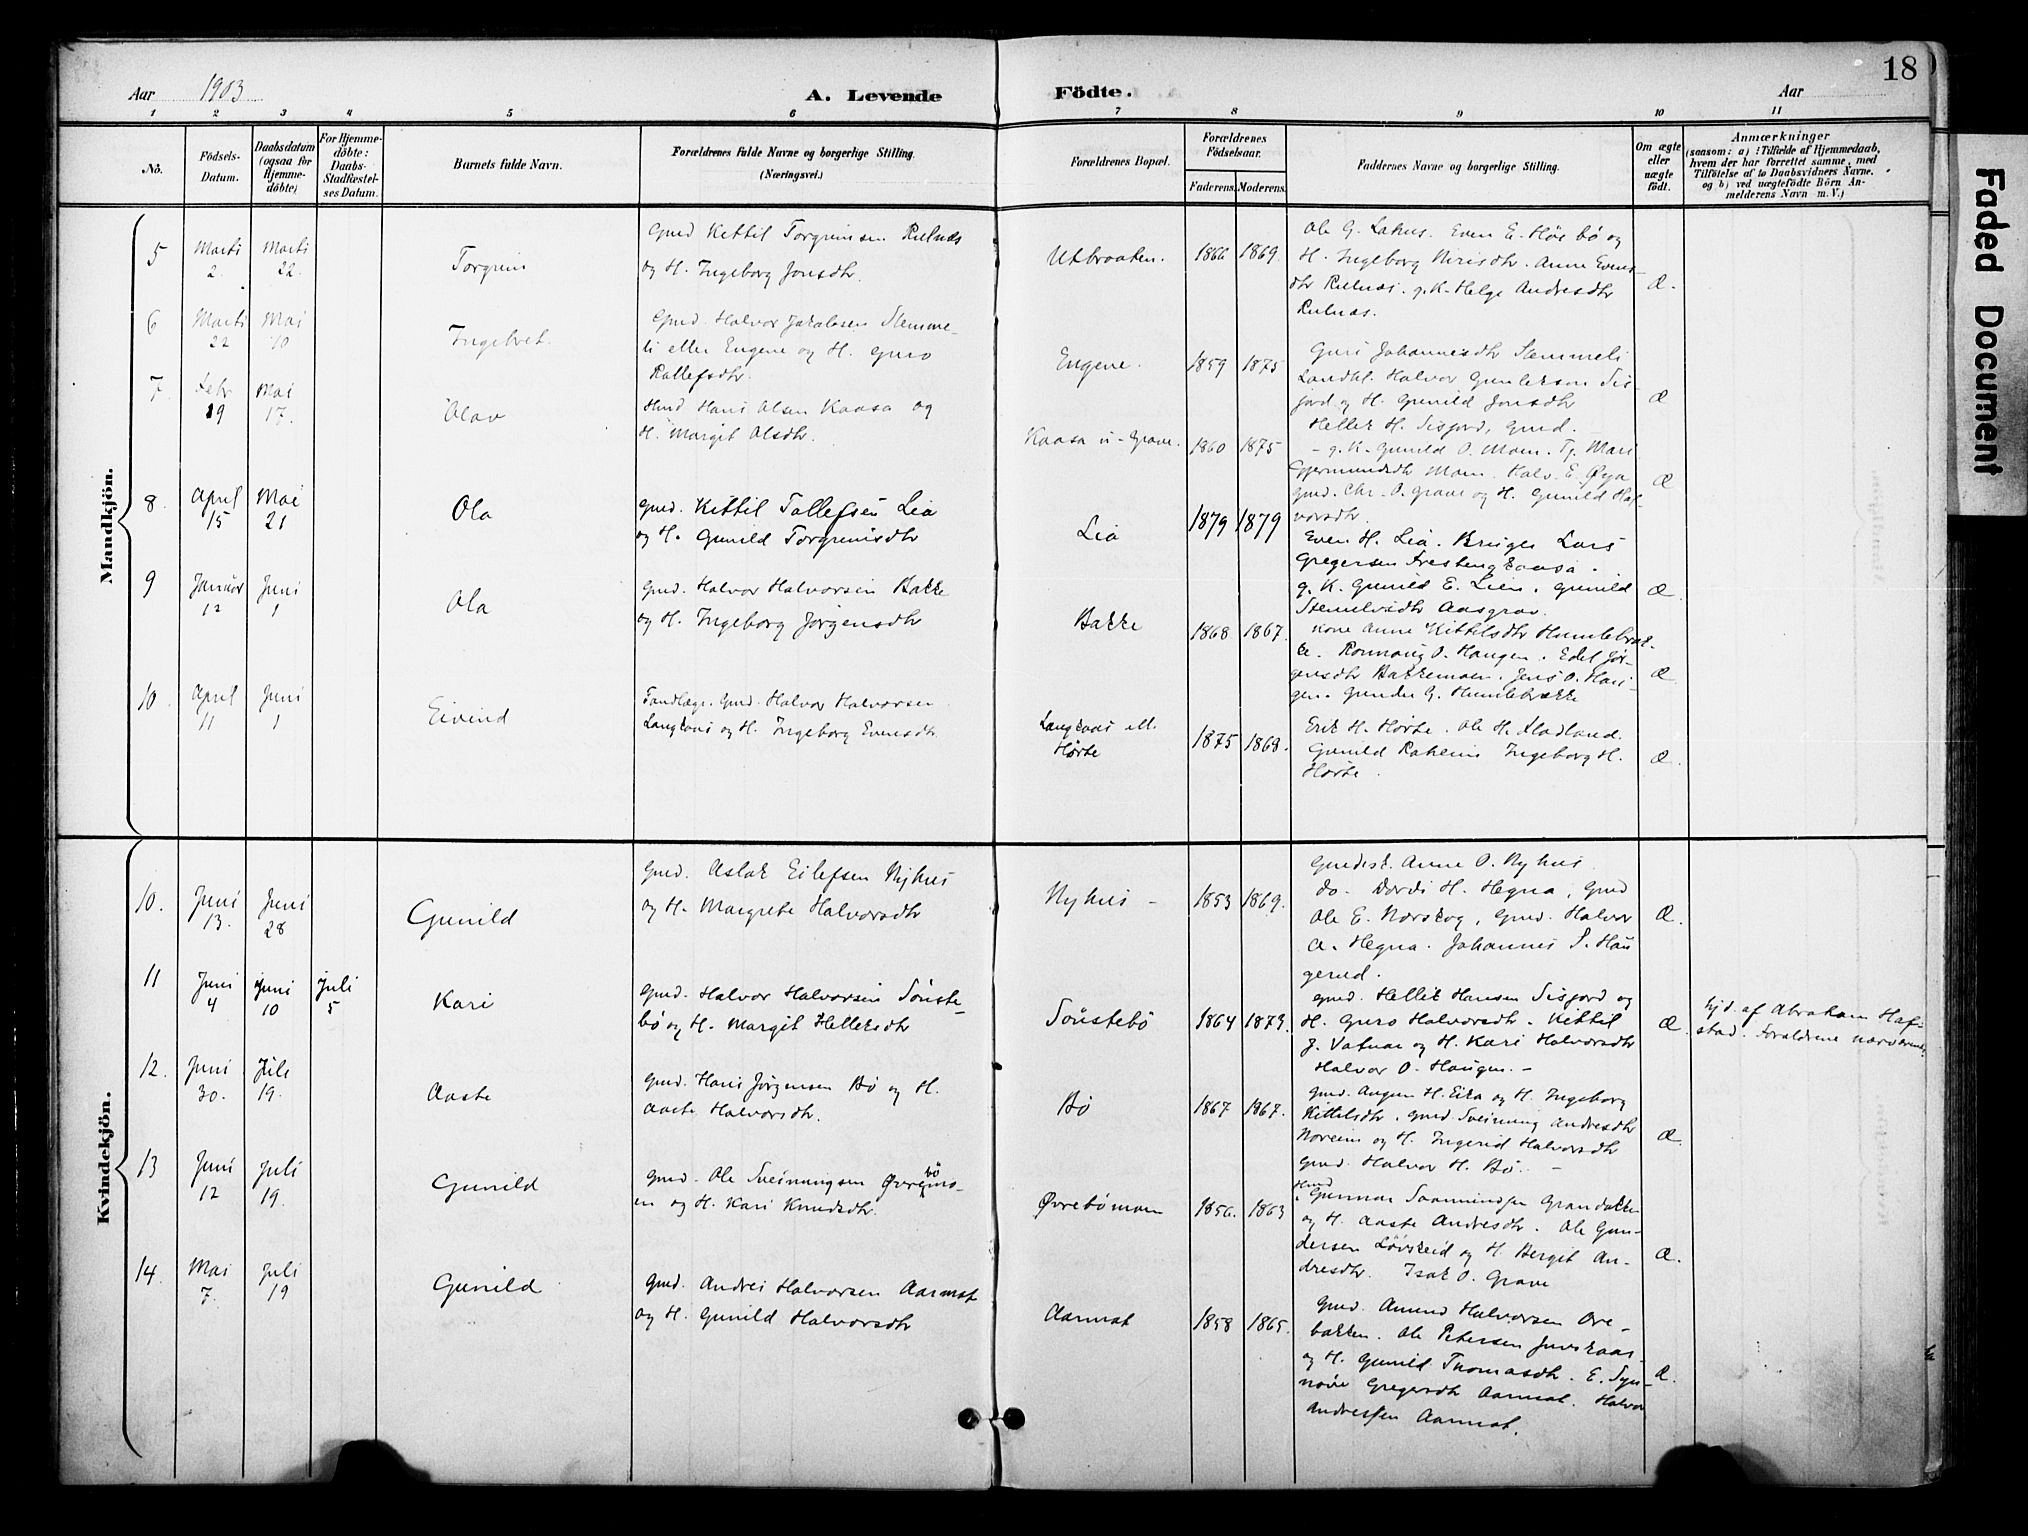 18
Aar 1903
A. Levende Födte.
Aar
1 2 3 4 5 6 7 8 9 10 11
No.
Födsels-Datum.
Daabsdatum (ogsaa for Hjemmedöbte)
For Hjemmedöbte: Daabs-Stadfæstelses Datum.
Barnets fulde Navn.
Forældrenes fulde Navne og borgerlige Stilling. (Næringsvei.)
Forældrenes Bopæl.
Forældrenes Födselsaar.
Faderens. Moderens.
Faddernes Navne og borgerlige Stilling.
Om ægte eller uægte födt.
Anmærkninger
(saasom: a) i Tilfælde af Hjemmedaab, hvem der har forrettet samme, med Tilföielse af to Daabsvidners Navne. og b) ved uægtefödte Börn Anmelderens Navn m.V.)
Faded Document
Mandkjön.
5 Marts 2. Marts 22. Torgrim
Gmd Kittil Torgrimsen
og H. Ingeborg Jonsdtr.
Utbraaten. 1866 1869.
Even E. Høibø og
H. Ingeborg Nirisdtr. Anne Evens-
dtr g. K. Helge Andresdtr
Æ.
6 Marts 22 Mai 10 Ingebret.
Gmd. Halvor Jakobsen Slemme-
li eller Engene og H. Guro
Rollefsdtr.
Engene. 1859 1875
Guri Johannesdtr Slemmeli
Landhl. Halvor Gunleksen Sis-
jord og H. Gunild Jonsdtr
Hellek H. Sisjord, Gmd.
Æ
7. Febr 19 Mai 17. Olav
Hmd Hans Olsen Kaasa og
H. Margit Olsdtr.
Kaasa u. Grave. 1860 1875
g. K. Gunild O. Moen. Tj. Mari
Gjermundsdtr Moen. Halv. E. Øya
gmd. Chr. O. Grave og H. Gunild Hal-
vorsdtr.
Æ
8. April 15 Mai 21 Ola
Gmd. Kittil Tollefsen Lia
og H. Gunild Torgrimsdtr
Lia 1879 1879
Even H. Lia. Bruger Lars
Gregersen
g. K. Gunild E. Lien. Gunild
Aasgrav.
Æ.
9 Januar 12 Juni 1 Ola
Gmd. Halvor Halvorsen Bakke
og H. Ingeborg Jørgensdtr
Bakke 1868 1867.
Kone Anne Kittilsdtr Humlebræk-
ke. Ronnaug O. Haugen. Edel Jør-
gensdtr Bakkemoen. Jens O. Hau-
gen. Gunder G. Humlebrække
Æ.
10. April 11 Juni 1 Eivind
Tandlæge. Gmd. Halvor Halvorsen
Langkaas og H. Ingeborg Evensdtr.
Langkaas ell. Hørte 1875 1868.
Erik H. Hørte. Ole H. Fladland.
Gunild Raheim Ingeborg H.
Hørte.
Æ.
Kvindekjön.
10. Juni 13. Juni 28 Gunild
Gmd. Aslak Eilefsen Nyhus
og H. Margrete Halvorsdtr
Nyhus - 1853 1869.
Gmdsk. Anne O. Nyhus.
do. Dordi H. Hegna, Gmd
Ole E. Norskog, Gmd. Halvor
A. Hegna. Johannes S. Hau
gerud.
Æ.
11 Juni 4 Juni 10 Juli 5 Kari
Gmd. Halvor Halvorsen Souste-
bø og H. Margit Helleksdtr
Soustebö 1864 1879.
Gmd. Hellik Hansen Sisjord og
H. Guro Halvorsdtr. Kittil
J. Vatnar og H. Kari Halvorsdtr
Halvor O. Haugen. -
Æ.
Hjd. af Abraham Haf-
stad. Foreldrene nærværende.
12. Juni 30. Juli 19. Aaste
Gmd. Hans Jørgensen Bö og H.
Aaste Halvorsdtr.
Bö 1867 1867.
Gmd. Augun H. Eika og H. Ingeborg
Kittilsdtr. Gmd. Sveinung Andresdtr
Noreim og H. Ingerid Halvorsdtr
Gmd. Halvor H. Bö. -
Æ.
13 Juni 12 Juli 19. Gunild
Gmd. Ole Sveinungsen Øvrebömo-
en og H. Kari Knudsdtr.
Øvrebömoen 1856. 1863
Hmd. Gunnar Saamundsen Grandokken
og H. Aaste Andresdtr. Ole Gun-
dersen Løvskeid og H. Bergit An-
dresdtr. Isak O. Grave
Æ.
14. Mai 7. Juli 19 Gunild
Gmd. Andres Halvorsen Aarmot
og H. Gunild Halvorsdtr
Aarmot 1858 1865.
Gmd. Amund Halvorsen Ore-
bakken. Ole Petersen Juvskaas
og H. Gunild Thomasdtr. E. Syn-
növe Gregersdtr Aarmot. Halvor
Andresen Aarmot.
Æ.